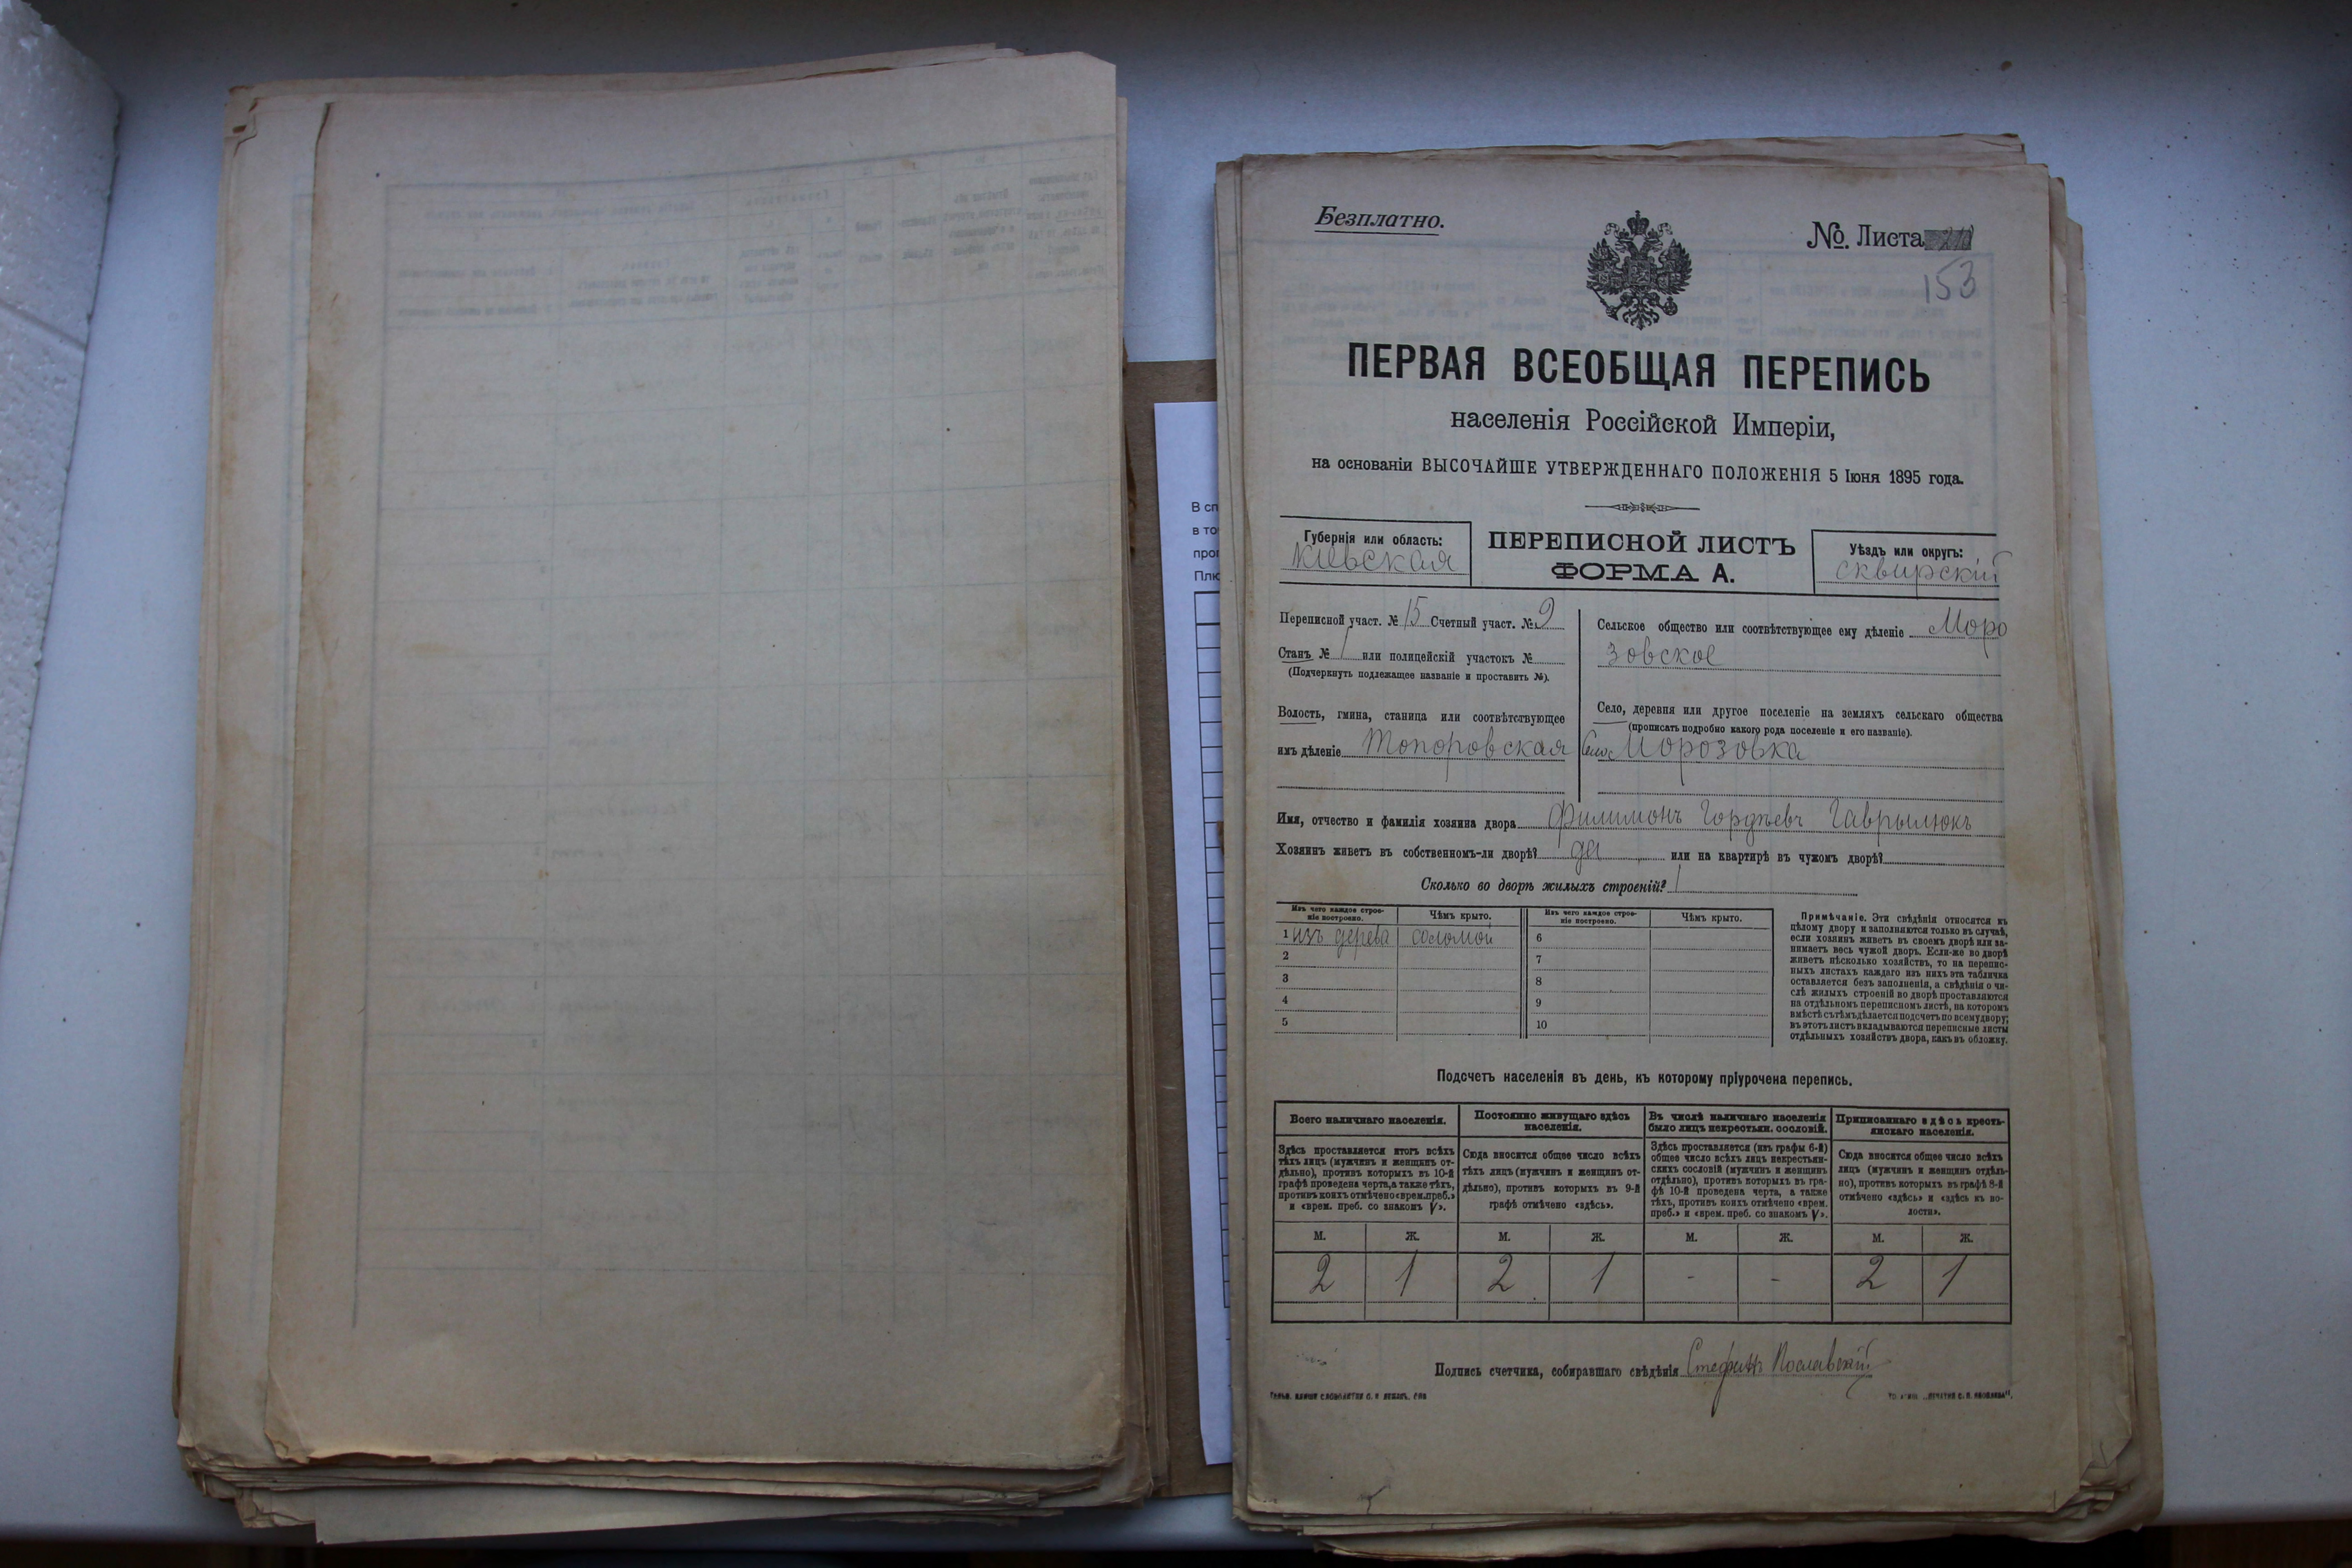 Безплатно.
№. Листа
153
ПЕРВАЯ ВСЕОБЩАЯ ПЕРЕПИСЬ
населенія Россійской Имперіи,
на основаніи ВЫСОЧАЙШЕ УТВЕРЖДЕННАГО ПОЛОЖЕНІЯ 5 Іюня 1895 года.
Губернія или область:
Кіевская
ПЕРЕПИСНОЙ ЛИСТЪ
ФОРМА А.
Уѣздъ или округъ:
сквирскій
Переписной участ. № 15 Счетный участ. № 9
Станъ № 1 или полицейскій участокъ №
(Подчеркнуть подлежащее названіе и проставить №).
Волость, гмина, станица или соотвѣтствующее
имъ дѣленіе Топоровская
Сельское общество или соотвѣтствующее ему дѣленіе Моро
зовское
Село, деревня или другое поселеніе на земляхъ сельскаго общества
(прописать подробно какого рода поселеніе и его названіе).
Село Морозовка
Имя, отчество и фамилія хозяина двора Филимонъ Гордѣевъ Гаврылюкъ
Хозяинъ живетъ въ собственномъ-ли дворѣ? да или на квартирѣ въ чужомъ дворѣ?
Сколько во дворѣ жилыхъ строеній? 1
Изъ чего каждое строе-
ніе построено.
Чѣмъ крыто.
Изъ чего каждое строе-
ніе построено.
Чѣмъ крыто.
1 изъ дерева соломой
2
3
4
5
6
7
8
9
10
Примѣчаніе. Эти свѣдѣнія относятся къ
цѣлому двору и заполняются только въ случаѣ,
если хозяинъ живетъ въ своемъ дворѣ или за-
нимаетъ весь чужой дворъ. Если-же во дворѣ
живетъ нѣсколько хозяйствъ, то на перепис-
ныхъ листахъ каждаго изъ нихъ эта табличка
оставляется безъ заполненія, а свѣдѣнія о чи-
слѣ жилыхъ строеній во дворѣ проставляются
на отдѣльномъ переписномъ листѣ, на которомъ
вмѣстѣ съ тѣмъ дѣлается подсчетъ по всему двору;
въ этотъ листъ вкладываются переписные листы
отдѣльныхъ хозяйствъ двора, какъ въ обложку.
Подсчетъ населенія въ день, къ которому пріурочена перепись.
Всего наличнаго населенія.
Здѣсь проставляется итогъ всѣхъ
тѣхъ лицъ (мужчинъ и женщинъ от-
дѣльно), противъ которыхъ въ 10-й
графѣ проведена черта, а также тѣхъ,
противъ коихъ отмѣчено «врем. преб.»
и «врем. преб. со знакомъ V».
Постоянно живущаго здѣсь
населенія.
Сюда вносится общее число всѣхъ
тѣхъ лицъ (мужчинъ и женщинъ от-
дѣльно), противъ которыхъ въ 9-й
графѣ отмѣчено «здѣсь».
Въ числѣ наличнаго населенія
было лицъ некрестьян. сословій.
Здѣсь проставляется (изъ графы 6-й)
общее число всѣхъ лицъ некрестьян-
скихъ сословій (мужчинъ и женщинъ
отдѣльно), противъ которыхъ въ гра-
фѣ 10-й проведена черта, а также
тѣхъ, противъ коихъ отмѣчено «врем.
преб.» и «врем. преб. со знакомъ V».
Приписаннаго здѣсь кресть-
янскаго населенія.
Сюда вносится общее число всѣхъ
лицъ (мужчинъ и женщинъ отдѣль-
но), противъ которыхъ въ графѣ 8-й
отмѣчено «здѣсь» и «здѣсь въ во-
лости».
М. Ж. М. Ж. М. Ж. М. Ж.
2 1 2 1 - - 2 1
Подпись счетчика, собиравшаго свѣдѣнія Стефанъ
В сп
в то
прог
Плю